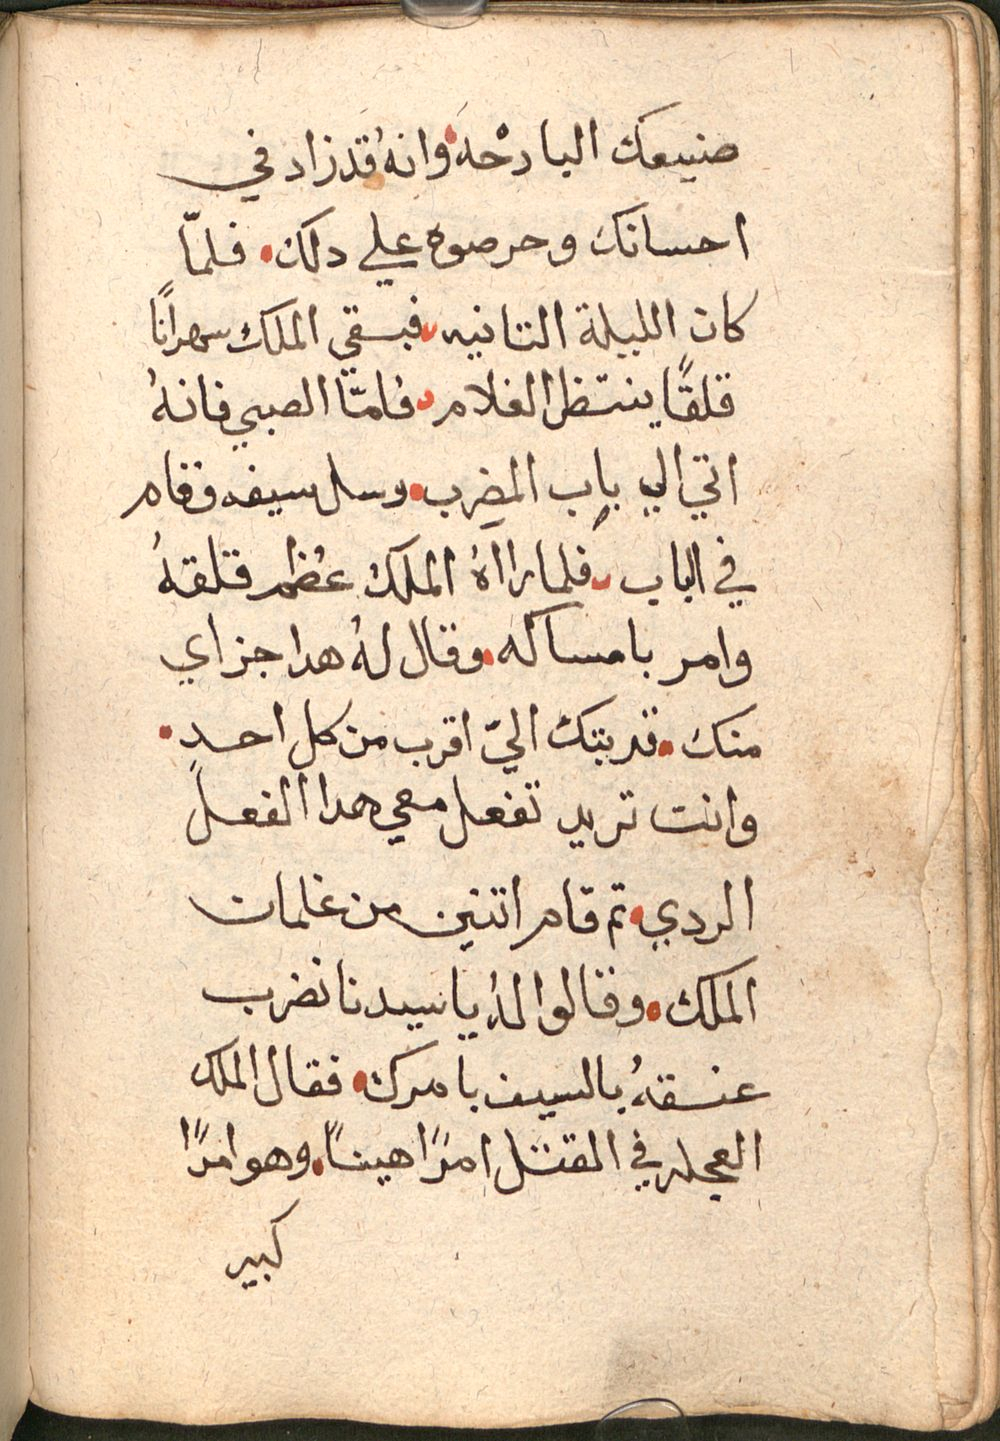 صنيعك البارحه وانهُ قد زاد في
احسانك وحرصوه علي دلك • فلمّا
كان الليلة التانيه • فبقي الملك سهرانًا
قلقًا ينتظر الغلام • فامّا الصبي فانهُ
اتي الي باب المضرب • وسل سيفه وقام
في الباب • فلما رااهُ الملك عظُم قلقهُ
وامر بامساكه • وقال لهُ هدا جزاي
منك • قربتك اليّ اقرب من كل احدٍ •
وانت تريد تفعل معي هدا الفعل
الردي • تم قام اتنين من غلمان
الملك • وقالوا لهُ يا سيدنا نضرب
عنقهُ بالسيف بامرك • فقال الملك
العجله في القتل امرًا هينًا • وهو امرًا
كبير